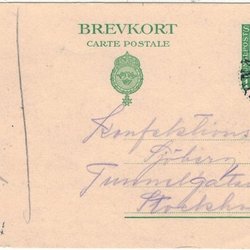 BREVKORT
CARTE POSTALE
Konfektions
Sjöberg
Tunnelgata
Stockho